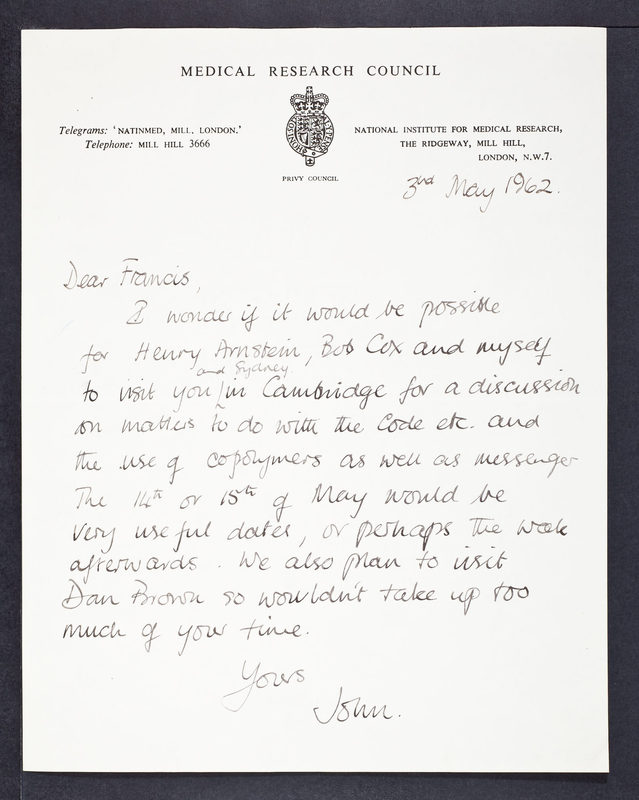 MEDICAL RESEARCH COUNCIL
Telegrams: 'NATINMED, MILL, LONDON.'
Telephone: MILL HILL 3666
PRIVY COUNCIL
NATIONAL INSTITUTE FOR MEDICAL RESEARCH,
THE RIDGEWAY, MILL HILL,
LONDON, N.W.7.
3rd May 1962.
Dear Francis,
I wonder if it would be possible
for Henry Arnstein, Bob Cox and myself
and Sydney
to visit you in Cambridge for a discussion
on matters to do with the Code etc. and
the use of copolymers as well as messenger
The 14th or 15th of May would be
very useful dates, or perhaps the week
afterwards. We also plan to visit
Dan Brown so wouldn't take up too
much of your time.
Yours
John.